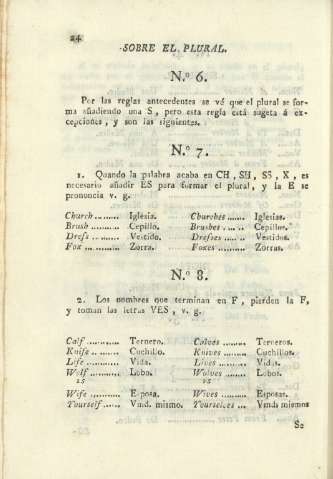 24
SOBRE EL PLURAL.
N.º 6.
Por las reglas antecedentes se vé que el plural se for-
ma añadiendo una S, pero esta regla está sugeta á ex-
cepciones, y son las siguientes.
N.º 7.
1. Quando la palabra acaba en CH, SH, SS, X, es
necesario añadir ES para formar el plural, y la E se
pronuncia v. g.
Church ......... Iglesia. Churches ....... Iglesias.
Brush .......... Cepillo. Brushes ....... Cepillos.
Dress .......... Vestido. Dresses ....... Vestidos.
Fox ............ Zorra. Foxes .......... Zorras.
N.º 8.
2. Los nombres que terminan en F, pierden la F,
y toman las letras VES, v. g.
Calf ........... Ternero. Calves ......... Terneros.
Knife .......... Cuchillo. Knives ......... Cuchillos.
Life ........... Vida. Lives .......... Vidas.
Wolf ........... Lobo. Wolves ......... Lobos.
Wife ........... Esposa. Wives .......... Esposas.
Yourself ...... Vmd. mismo. Yourselves ... Vmds mismos